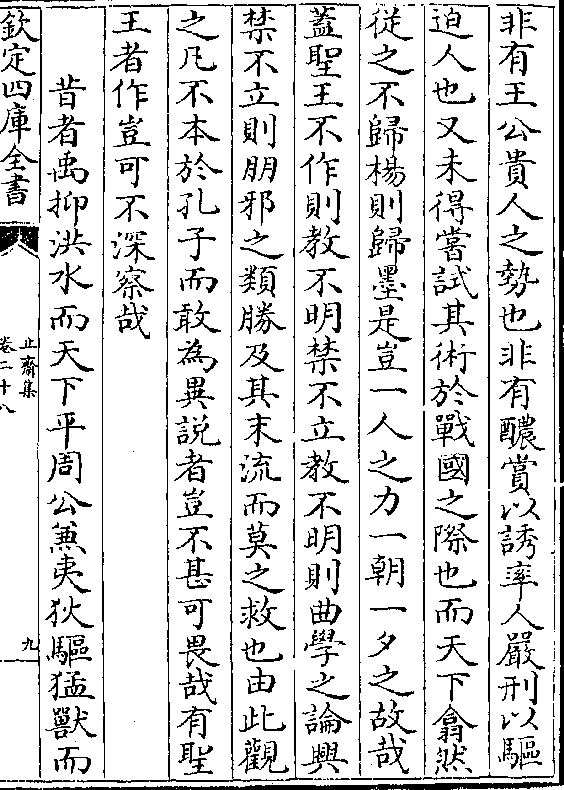 非有王公貴人之勢也非有醲賞以誘率人嚴刑以驅
迫人也又未得嘗試其術於戰國之際也而天下翕然
從之不歸楊則歸墨是豈一人之力一朝一夕之故哉
蓋聖王不作則教不明禁不立教不明則曲學之論興
禁不立則朋邪之類勝及其末流而莫之救也由此觀
之凡不本於孔子而敢為異説者豈不甚可畏哉有聖
王者作豈可不深察哉
昔者禹抑洪水而天下平周公兼夷狄驅猛獸而
欽定四庫全書
止齋集
卷二十八
九